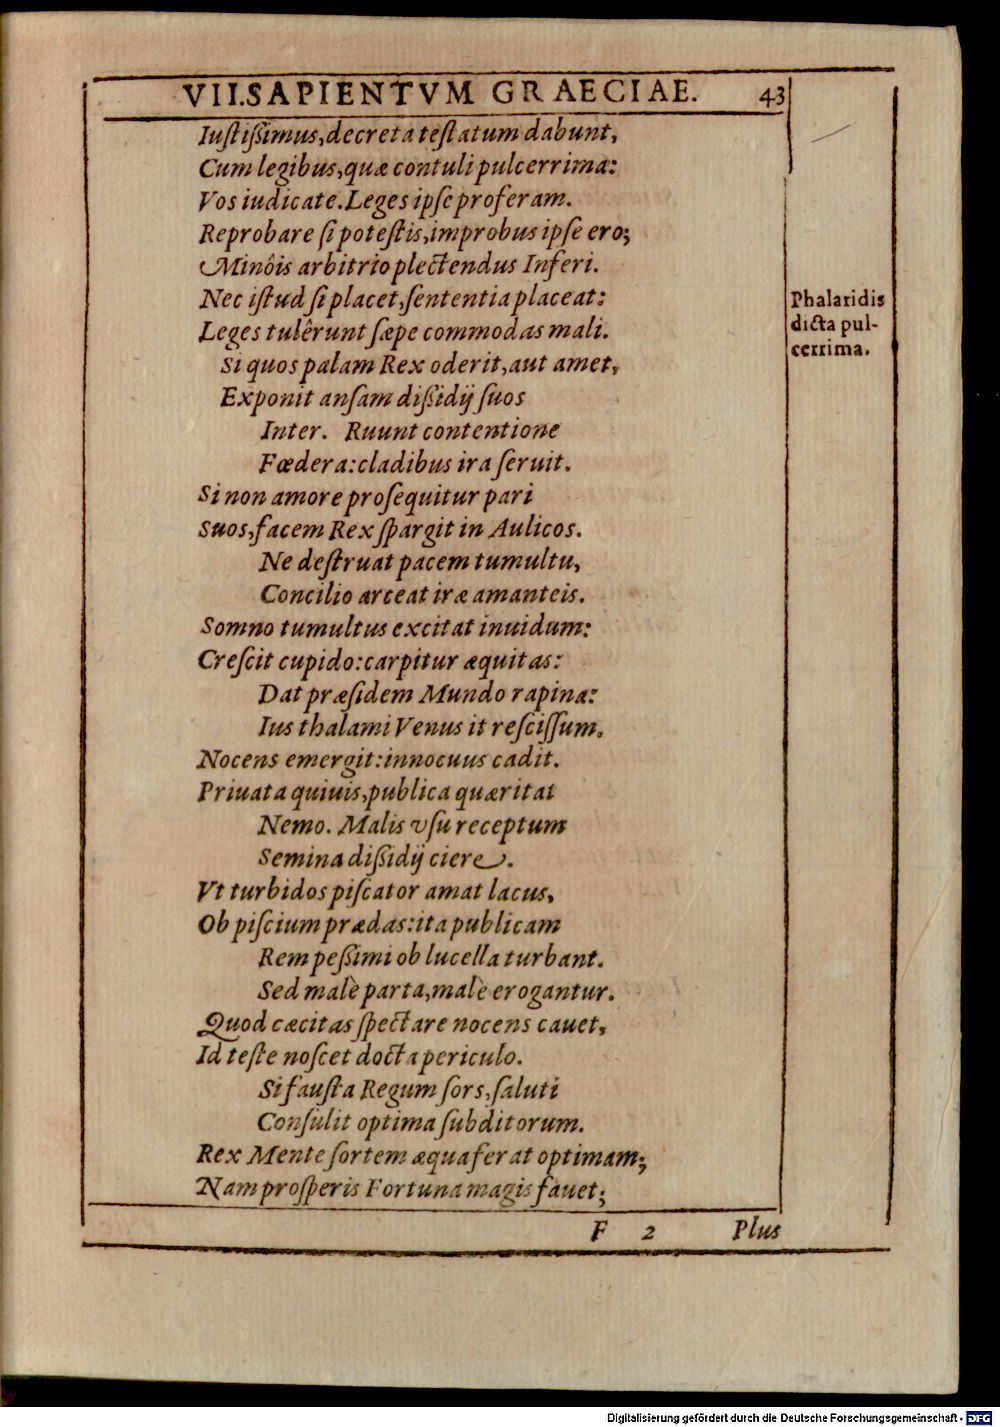 VII. SAPIENTVM GRAECIAE. 43
Iuſtiſſimus, decreta teſtatum dabunt,
Cum legibus, quæ contuli pulcerrima:
Vos iudicate. Leges ipſe proferam.
Reprobare ſi poteſtis, improbus ipſe ero;
Minôis arbitrio plectendus Inferi.
Nec iſtud ſi placet, ſententia placeat:
Leges tulêrunt ſæpe commodas mali.
Phalaridis
dicta pul-
cerrima.
Si quos palam Rex oderit, aut amet,
Exponit anſam diſſidij ſuos
Inter. Ruunt contentione
Fœdera: cladibus ira ſeruit.
Si non amore proſequitur pari
Suos, facem Rex ſpargit in Aulicos.
Ne deſtruat pacem tumultu,
Concilio arceat iræ amanteis.
Somno tumultus excitat inuidum:
Creſcit cupido: carpitur æquitas:
Dat præſidem Mundo rapina:
Ius thalami Venus it reſciſſum.
Nocens emergit: innocuus cadit.
Priuata quiuis, publica quæritat
Nemo. Malis vſu receptum
Semina diſſidij ciere.
Vt turbidos piſcator amat lacus,
Ob piſcium prædas: ita publicam
Rem peſſimi ob lucella turbant.
Sed malè parta, malè erogantur.
Quod cæcitas ſpectare nocens cauet,
Id teſte noſcet docta periculo.
Si fauſta Regum ſors, ſaluti
Conſulit optima ſubditorum.
Rex Mente ſortem æqua ferat optimam;
Nam proſperis Fortuna magis fauet;
F 2 Plus
Digitalisierung gefördert durch die Deutsche Forschungsgemeinschaft - DFG